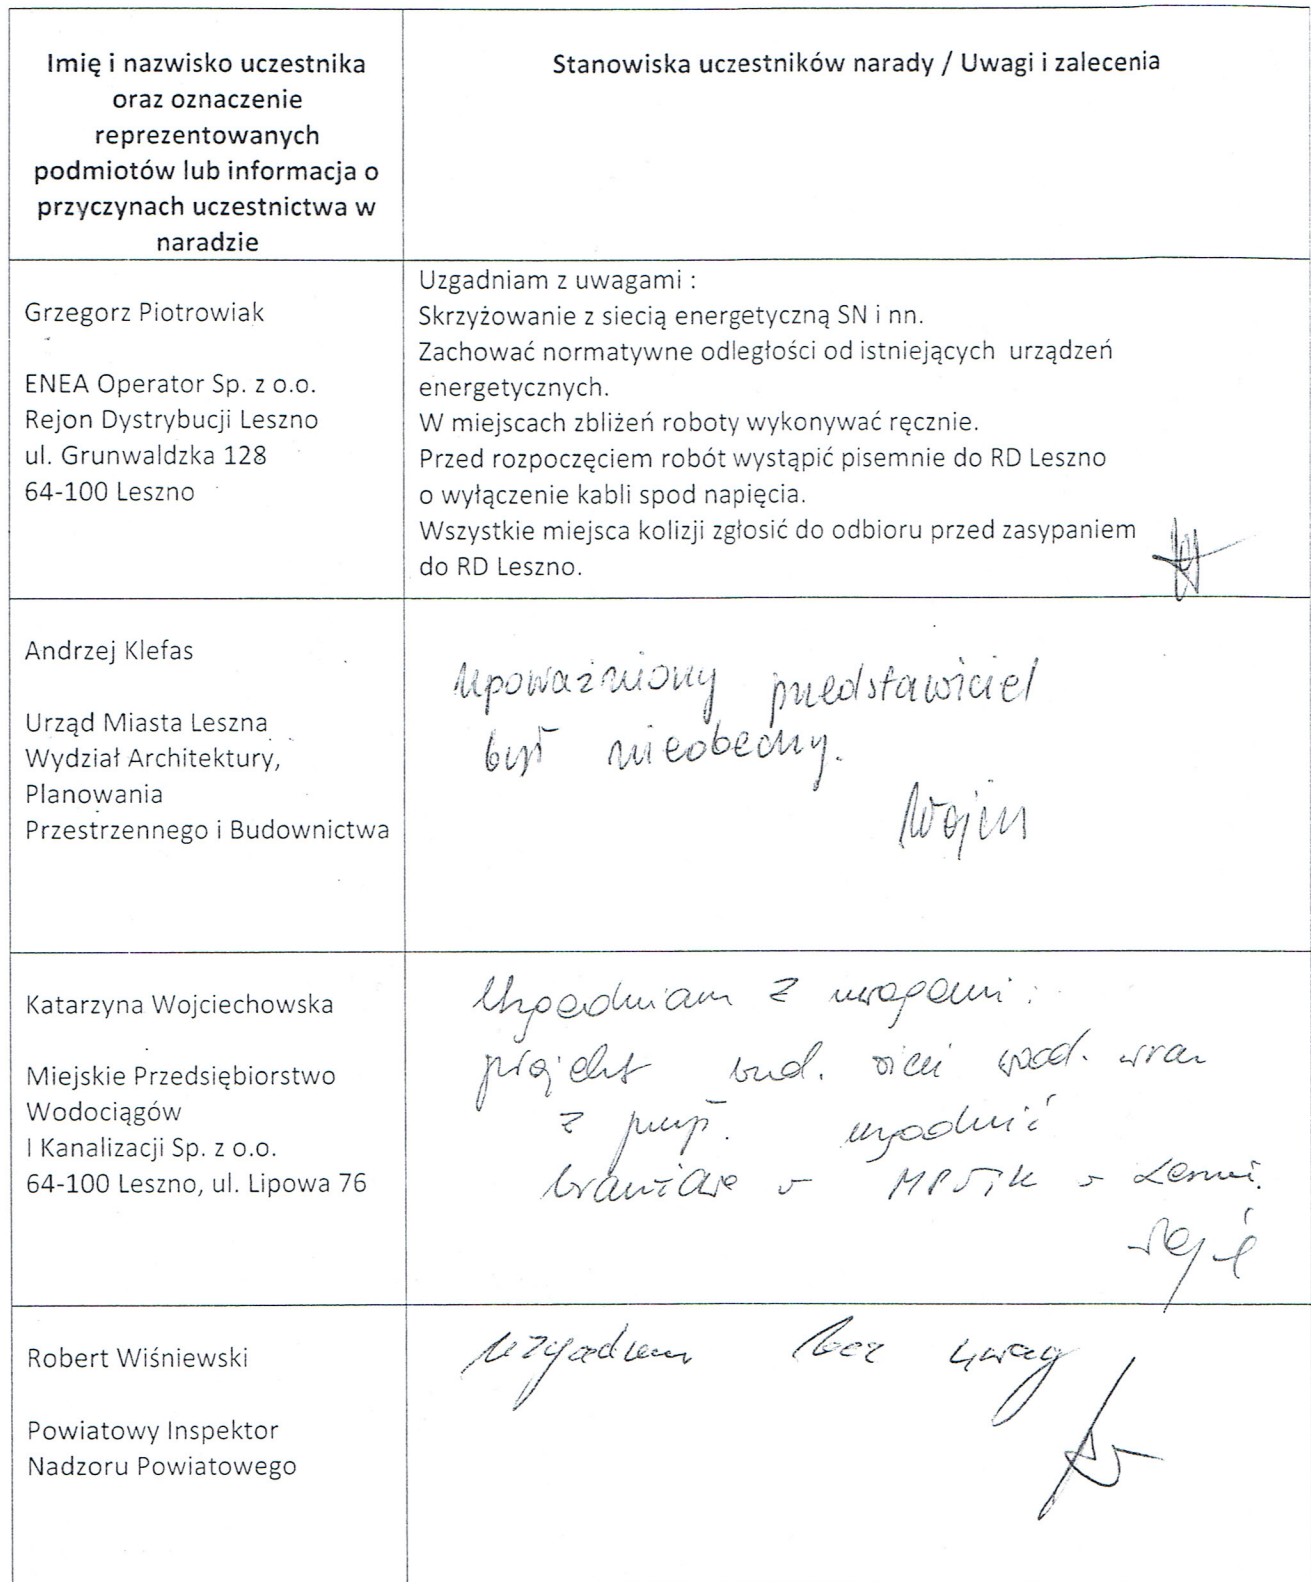 Imię i nazwisko uczestnika
oraz oznaczenie
reprezentowanych
podmiotów lub informacja o
przyczynach uczestnictwa w
naradzie
Stanowiska uczestników narady / Uwagi i zalecenia
Grzegorz Piotrowiak
ENEA Operator Sp. z o.o.
Rejon Dystrybucji Leszno
ul. Grunwaldzka 128
64-100 Leszno
Uzgadniam z uwagami :
Skrzyżowanie z siecią energetyczną SN i nn.
Zachować normatywne odległości od istniejących urządzeń
energetycznych.
W miejscach zbliżeń roboty wykonywać ręcznie.
Przed rozpoczęciem robót wystąpić pisemnie do RD Leszno
o wyłączenie kabli spod napięcia.
Wszystkie miejsca kolizji zgłosić do odbioru przed zasypaniem
do RD Leszno.
Andrzej Klefas
Urząd Miasta Leszna
Wydział Architektury,
Planowania
Przestrzennego i Budownictwa
Upoważniony przedstawiciel
był nieobecny.
Katarzyna Wojciechowska
Miejskie Przedsiębiorstwo
Wodociągów
I Kanalizacji Sp. z o.o.
64-100 Leszno, ul. Lipowa 76
Uzgadniam z uwagami :
projekt bud. sieci wod. wraz
z przył. uzgodnić
branżowo w MPWiK w Lesznie.
Robert Wiśniewski
Powiatowy Inspektor
Nadzoru Powiatowego
uzgadniam bez uwag